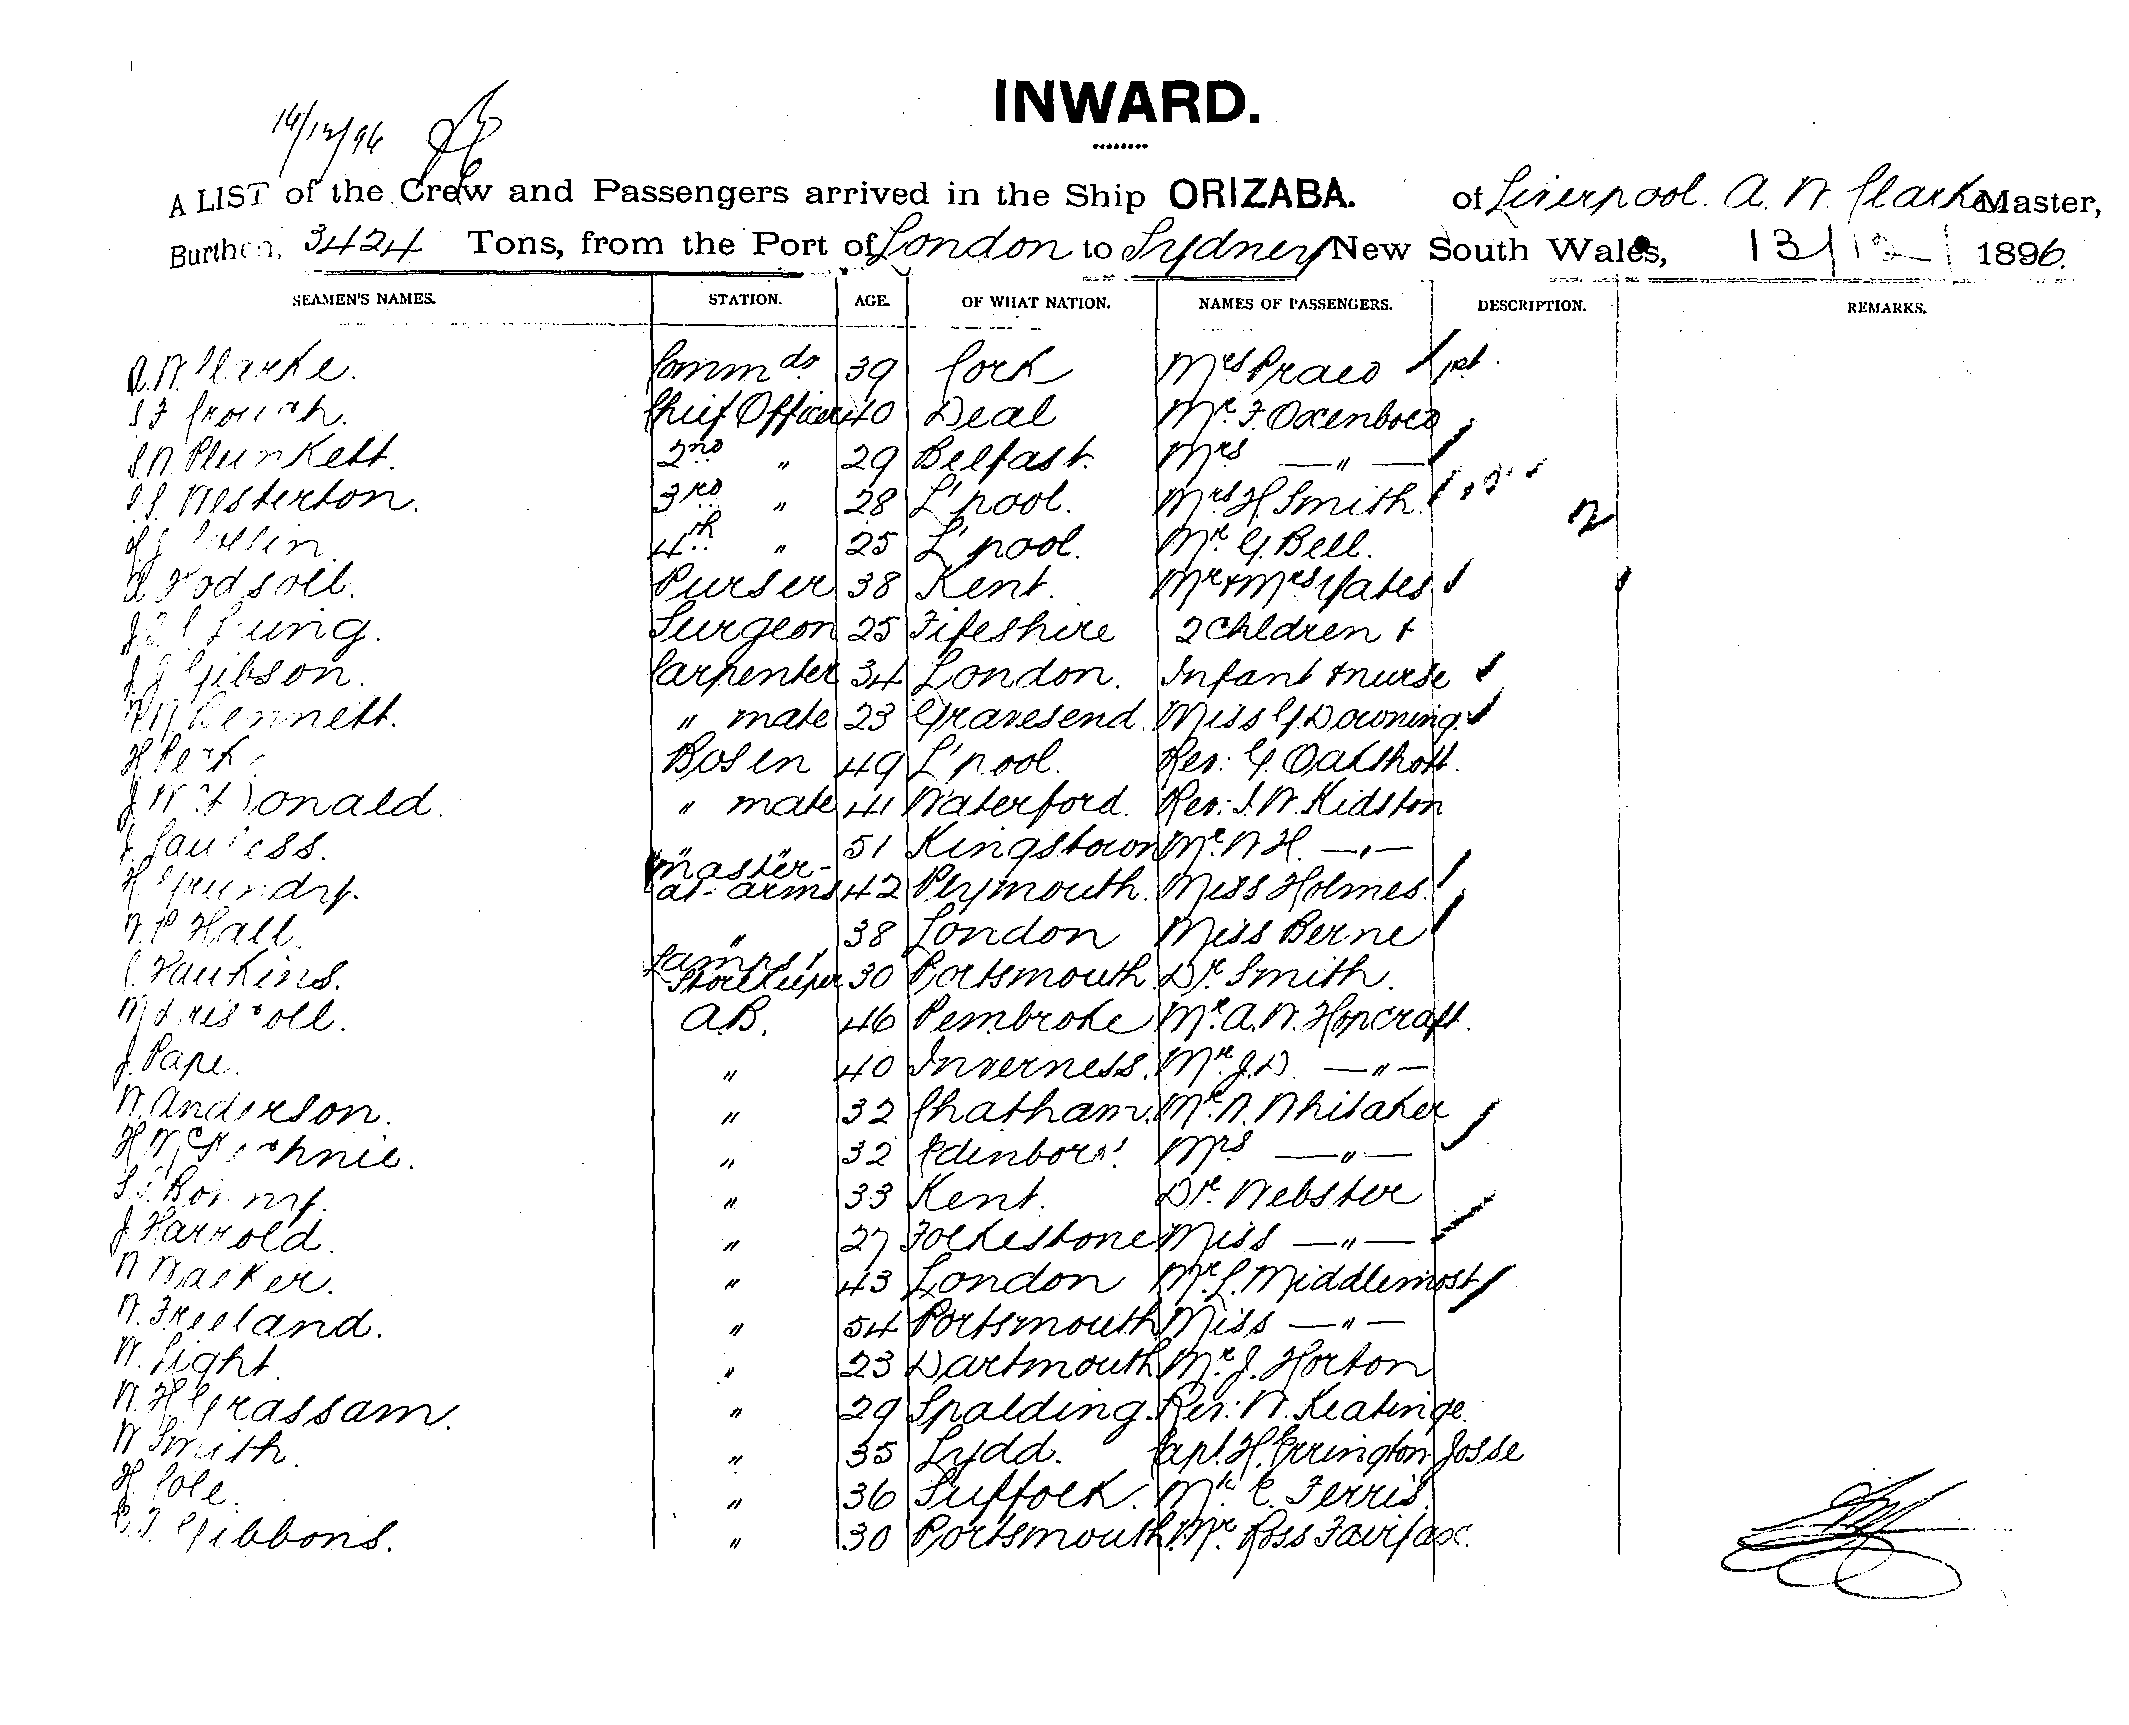 INWARD.
14/12/96
A LIST of the Crew and Passengers arrived in the Ship ORIZABA. of Liverpool. A. W. Clarke Master,
Burthen, 3424 Tons, from the Port of London to Sydney New South Wales, 13/12/1896.
SEAMEN'S NAMES. STATION. AGE. OF WHAT NATION. NAMES OF PASSENGERS. DESCRIPTION. REMARKS.
A. W. Clarke. Commdr 39 Cork Mrs Praed
Crouch. Chief Officer 40 Deal Mr. F. Oxenboed
Plunkett. 2nd " 29 Belfast. Mrs — " —
Westerton. 3rd " 28 L'pool. Mrs H Smith
4th " 25 L'pool. Mr. G. Bell.
Purser 38 Kent. Mr & Mrs Yates
Surgeon 25 Fifeshire 2 Children &
Gibson. Carpenter 34 London. Infant & nurse
Kennett. " mate 23 Gravesend. Miss G. Downing
H Peck. Bosen 49 L'pool. Rev: G. Oakshott.
J McDonald. " mate 41 Waterford. Rev: J. W. Kidston
Lawless. " " 51 Kingstown Mr. W. H. — " —
H Grundy. Master-at-arms 42 Plymouth. Miss Holmes
W. P. Hall. " 38 London Miss Berne
C. Hawkins. Lamps & Storekeeper 30 Portsmouth. Dr. Smith.
M Driscoll. A.B. 46 Pembroke Mr. A. W. Hopcraft.
J. Pape. " 40 Inverness. Mr. J. D. — " —
W. Anderson. " 32 Chatham. Mr. W. Whitaker
" 32 Edinboro'. Mrs — " —
" 33 Kent. Dr. Webster
J. Harrold. " 27 Folkestone Miss — " —
W Walker. " 43 London Mr. L. Middlemost
W. Freeland. " 54 Portsmouth Miss — " —
W. Light. " 23 Dartmouth Mr. J. Horton
W. H Grassam. " 29 Spalding. Rev: W. Keatinge.
W Smith. " 35 Lydd. Capt. H. Errington Josse
H. Cole. " 36 Suffolk. Mr. C. Ferris
C. T. Gibbons. " 30 Portsmouth. Mr. Ross Fairfax.